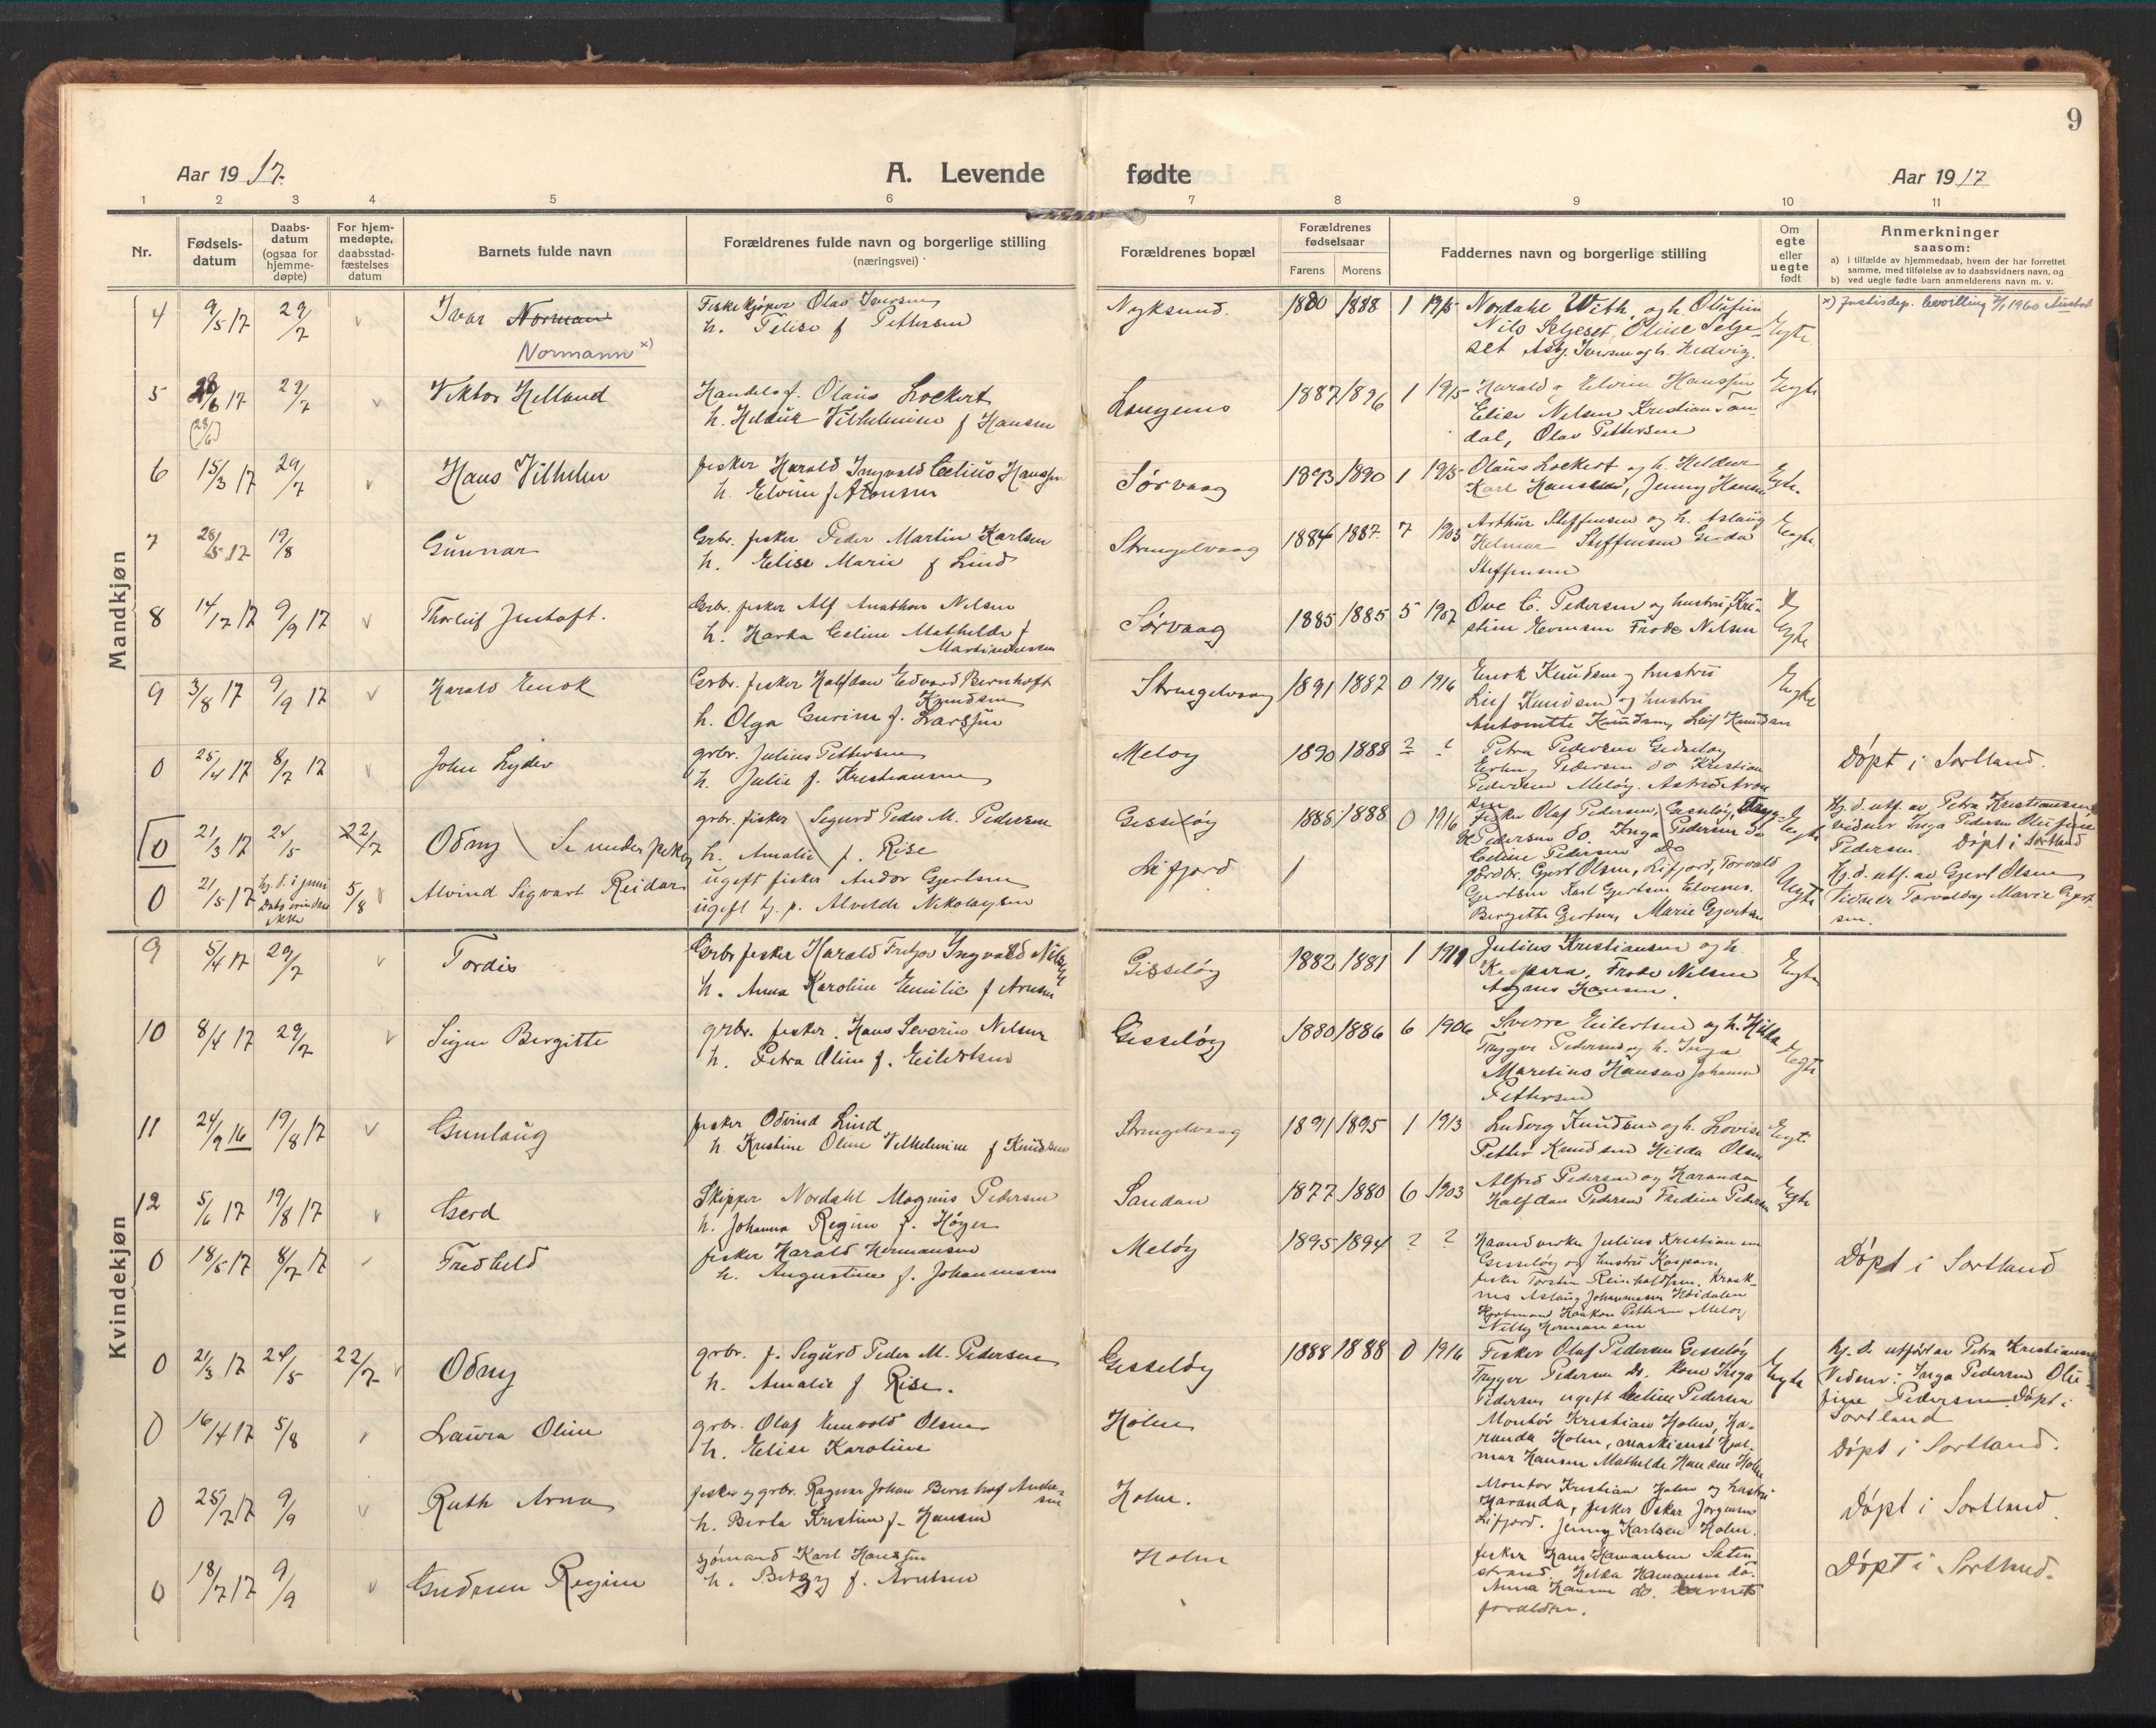 9
Aar 1917.
A. Levende
fødte
Aar 1917
1 2 3 4 5 6 7 8 9 10 11
Nr.
Fødsels-
datum
Daabs-
datum
(ogsaa for
hjemme-
døpte)
For hjem-
medøpte,
daabsstad-
fæstelses
datum
Barnets fulde navn
Forældrenes fulde navn og borgerlige stilling
(næringsvei)
Forældrenes bopæl
Forældrenes
fødselsaar
Farens Morens
Faddernes navn og borgerlige stilling
Om
egte
eller
uegte
født
Anmerkninger
saasom:
a) i tilfælde av hjemmedaab, hvem der har forrettet
samme, med tilføielse av to daabsvidners navn, og
b) ved uegte fødte barn anmelderens navn m. v.
Mandkjøn
4 9/5 17 29/7 v Ivar Norman
Normann x)
Fiskekjøper Olav Iversen
h. Felise f Pettersen
Nyksund. 1880 1888 1 1915
Nordahl With, og h. Olufine
Nils Seljeset, Oline Selje-
set Asbj. Iversen og h. Hedvig.
Egte
x) Justisdep. bevilling 1960
5 28/6 17 (28/6) 29/7 v Viktor Helland
Handelsf. Olaus Lockert
h. Hildur Vilhelmine f Hansen
1887 1896 1 1915
Harald o Elvine Hanssen
Elise Nilsen Kristian Tan-
dal, Olav Pettersen
Egte
6 15/3 17 29/7 v Hans Vilhelm
fisker Harald Ingvald Cælius Hanssen
h. Elvine f Aronsen
Sørvaag 1893 1890 1 1915
Olaus Lockert og h. Hildur
Karl Hanssen, Jenny Hansen
Egte.
7 28/5 17 19/8 Gunnar
Grbr. fisker Peder Martin Karlsen
h. Elise Marie f Lind
Strengelvaag 1884 1887. 7 1903
Arthur Steffensen og h. Aslaug
Helmer Steffensen Gerda
Steffensen
Egte
8 14/7 17 9/9 17 v Thorleif Justoft.
Grbr. fisker Alf Anathon Nilsen
h. Harka Celine Mathilde f
Martinussen
Sørvaag 1885 1885 5 1907
Ove C. Pedersen og hustru, Kri-
stine Evensen Frode Nilsen
Egte
9 3/8 17 9/9 17 v Harald Enok
Grbr. fisker Halfdan Edvard Bernhoft
Knudsen
h. Olga Gurine f. Larssen
Strengelvaag 1891 1887 0 1916
Enok Knudsen og hustru
Leif Knudsen og hustru
Antonette Knudsen, Leif Knudsen
Egte
0 25/4 17 8/7 17 v John Lyder
grbr. Julius Pettersen
h. Julie f. Kristiansen
Meløy 1890 1888 ? ?
Petra Pedersen Gisseløy
Erling Pedersen do Kristian
Pedersen Meløy. Astrid Aron
sen
Døpt i Sortland.
0 21/3 17 24/5 22/7 Odny Se under piker
grbr. fisker Sigurd Peder M. Pedersen
h. Amalie f. Rise
Gisseløy 1888 1888 0 1916
fisker Olaf Pedersen, Gisseløy, Trygg-
Pedersen do. Inga Pedersen do
Celine Pedersen do
Egte
Hj. d. utf. av Petra Kristiansen
vidner Inga Pedersen Olufine
Pedersen. Døpt i Sortland
0 21/5 17 hj. d. i juni
Dato erindres
ikke
5/8 v Alvind Sigvart Reidar
ugift fisker Andor Gjertsen
ugift tj. p. Alvilde Nikolaysen
Lifjord
Jordbr. Gjert Olsen, Lifjord, Torvald
Gjertsen Karl Gjertsen Elvenes.
Bergitte Gjertsen, Marie Gjertsen
Uegte
Hj. d. utf. av Gjert Olsen
Vidner Torvald og Marie Gjert-
sen.
Kvindekjøn
9 5/4 17 29/7 v Tordis
Grbr fisker Harald Fritjov Ingvald Nilsen
h. Anna Karoline Emilie f Arntsen
Gisseløy 1882 1881 1 1911
Julius Kristiansen og h.
Kaspara, Frode Nilsen
Agnes Hansen.
Egte
10 8/4 17 29/7 v Signe Bergitte
grbr. fisker. Hans Severin Nilsen
h. Petra Oline f. Eilertsen
Gisseløy 1880 1886 6 1906
Sverre Eilertsen og h. Hilda
Trygve Pedersen og h. Inga
Marelius Hansen Johanna
Pettersen
Egte
11 24/9 16 19/8 17 v Gunlaug
fisker Odvind Lind
h. Kristine Oline Vilhelmine f Knudsen
Strengelvaag 1891 1895 1 1913
Ludvig Knudsen og h. Lovise
Petter Knudsen Hilda Olsen
Egte
12 5/6 17 19/8 17 v Gerd
Skipper Nordahl Magnus Pedersen
h. Johanna Regine f. Høyer
Sandan 1877 1880 6 1903
Alfred Pedersen og Haranda
Halfdan Pedersen Fredine Pedersen
Egte
0 18/5 17 8/7 17 Fredhild
fisker Harald Hermansen
h. Augustine f. Johannessen
Meløy 1895 1894 ? ?
Haandverker Julius Kristiansen
Gisseløy og hustru Kaspara,
fisker Torstein Reinholdtsen, Kraak-
nes Aslaug Johannessen Høidalen
Haakon Pettersen Meløy
Nelly Hermansen
Døpt i Sortland
0 21/3 17 24/5 22/7 v Odny
grbr. f. Sigurd Peder M. Pedersen
h. Amalie f Rise.
Gisseløy 1888 1888 0 1916
Fisker Olaf Pedersen Gisseløy
Trygve Pedersen do. kone Inga
Pedersen ugift Celine Pedersen
Egte
hj. d. utført av Petra Kristiansen
Vidner: Inga Pedersen Olu-
fine Pedersen. Døpt i
Sortland
0 16/4 17 5/8 v Laura Oline
grbr. Olaf Emvold Olsen
h. Elise Karoline
Holm
Montør Kristian Holm, Ha-
randa Holm, maskinist Hjal-
mar Hansen Mathilde Hansen Holm
Døpt i Sortland.
0 25/7 17 9/9 v Ruth Arna
fisker og grbr. Ragnar Johan Bernhof Ander-
sen
h. Berta Kristine f. Hansen
Holm.
Montør Kristian Holm og hustru
Haranda, fisker Oskar Jørgensen
Lifjord. Jenny Karlsen Holm.
Døpt i Sortland.
0 18/7 17 9/9 v Gudrun Regine
sjømand Karl Hanssen
h. f. Arntsen
Holm
fisker Hans Hermansen
strand. Helka Hermansen do.
Anna Hansen do. barnets
forældre.
Døpt i Sortland.